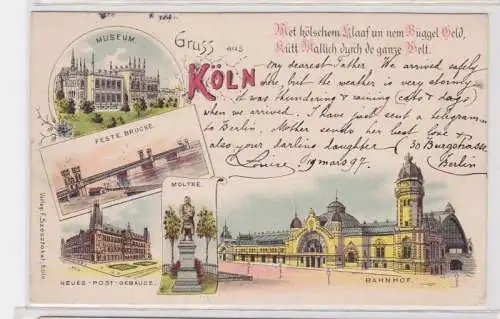 MUSEUM.
Gruss aus
KÖLN
Met kölschem Klaaf un nem Büggel Geld,
Kütt Mallich durch de ganze Welt.
my dearest Father. We arrived safely
here, but the weather is very stormy
it was thundering & raining (cats & dogs)
when we arrived. I have just sent a telegramm
to Berlin. Mother sends her best love &
also your darling daughter
30 Burgstrasse
Louise 19 mars 97.
Berlin
FESTE BRÜCKE.
MOLTKE.
NEUES-POST-GEBÄUDE.
BAHNHOF.
Verlag F.
Köln